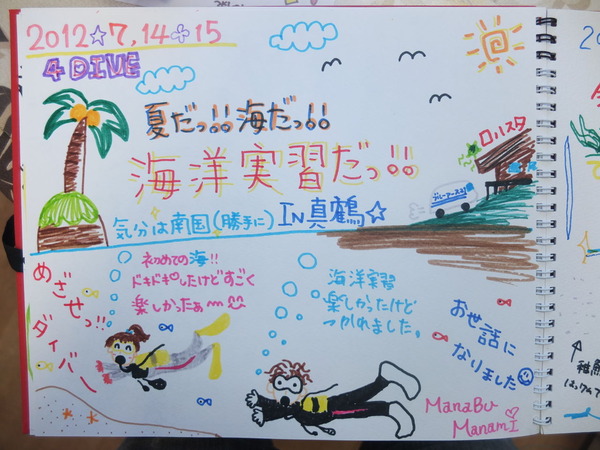 2012☆7,14✧15
4 DIVE
夏だっ!! 海だっ!!
海洋実習だっ!!
気分は南国(勝手に) IN 真鶴☆
ロハスタ
めざせっ!!
ダイバー
初めての海!!
ドキドキしたけどすごく
楽しかったぁm
海洋実習
楽しかったけど
つかれました。
お世話に
なりました
ManaBu
Manami